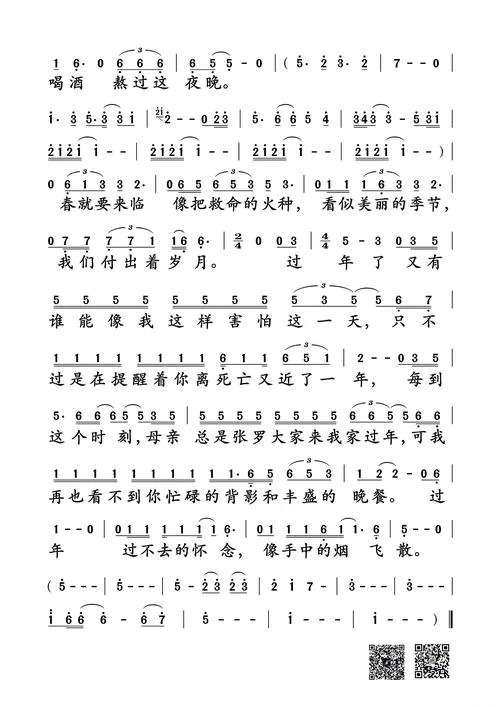 1 6· 0 6 6 6 | 6 5 5 - 0 | ( 5· 2 3· 2 | 7 - - 0 |
喝酒 熬过这 夜晚。
i· 3 5·3 3i | 2i 2 - - 0 2 3 | 5· 6 6 5 4 | 3 4 3 3 - 3 |
2i2i i - - | 2i2i i - - | 2i2i i - - | 2i2i i - - )
0 6 1 3 3 3 2· | 0 6 5 6 5 3 5 3 | 0 1 1 1 6 3 3 2· |
春就要来临 像把救命的火种, 看似美丽的季节,
0 7 7 7 7 1 1 6 6· | 2/4 0 0 3 | 4/4 5 - 3 0 3 5 |
我们付出着岁月。 过 年了 又有
5 5 5 5 5 5 5 5 3 5 5 6 7 |
谁能像我这样害怕这一天, 只不
1 1 1 1 1 1 1 1 6 1 1 6 5 1 | 2 - - 0 3 5 |
过是在提醒着你离死亡又近了一 年, 每到
5· 6 6 6 5 5 3 5 | 5 5 5 5 5 5 5 5 6 6 5 5 6 |
这个时刻,母亲 总是张罗大家来我家过年,可我
1 1 1 1 1 1 1 1· 6 5 6 5 3 | 1 2 2 - 0 6 |
再也看不到你忙碌的背影和丰盛的 晚餐。 过
1 - - 0 | 0 1 1 1 1 1 6 6· | 0 1 1 1 6 1 6· | 5 - - 0 |
年 过不去的怀念, 像手中的烟 飞散。
( 5 - - - | 5 - - - | 5 - 2 3 2 3 | 2 i 7 - | 3 - - - | 3 - - - |
i 6 6 6 - | 6 - - - | 5 - - - | i - - - | i - - - )